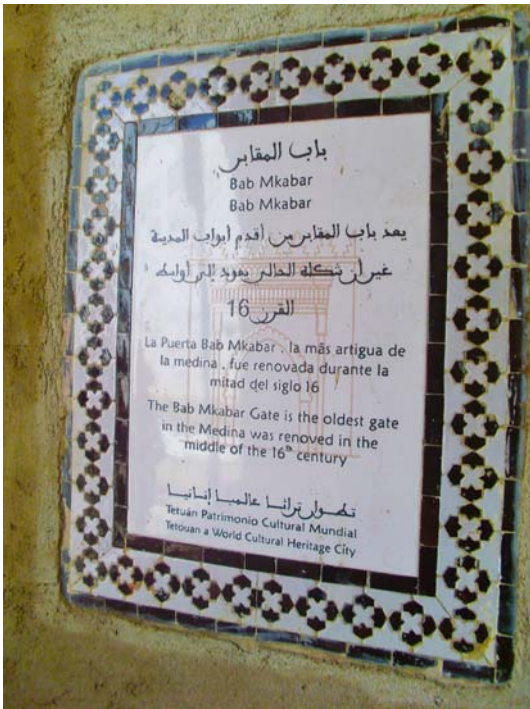 باب المقابر
Bab Mkabar
Bab Mkabar
يعد باب المقابر من أقدم أبواب المدينة
غير أن شكله الحالي يعود إلى أواسط
القرن 16
La Puerta Bab Mkabar . la más artigua de
la medina . fue renovada durante la
mitad del siglo 16
The Bab Mkabar Gate is the oldest gate
in the Medina was renoved in the
middle of the 16th century
تطوان تراثا عالميا إنسانيا
Tetuán Patrimonio Cultural Mundial
Tetouan a World Cultural Heritage City